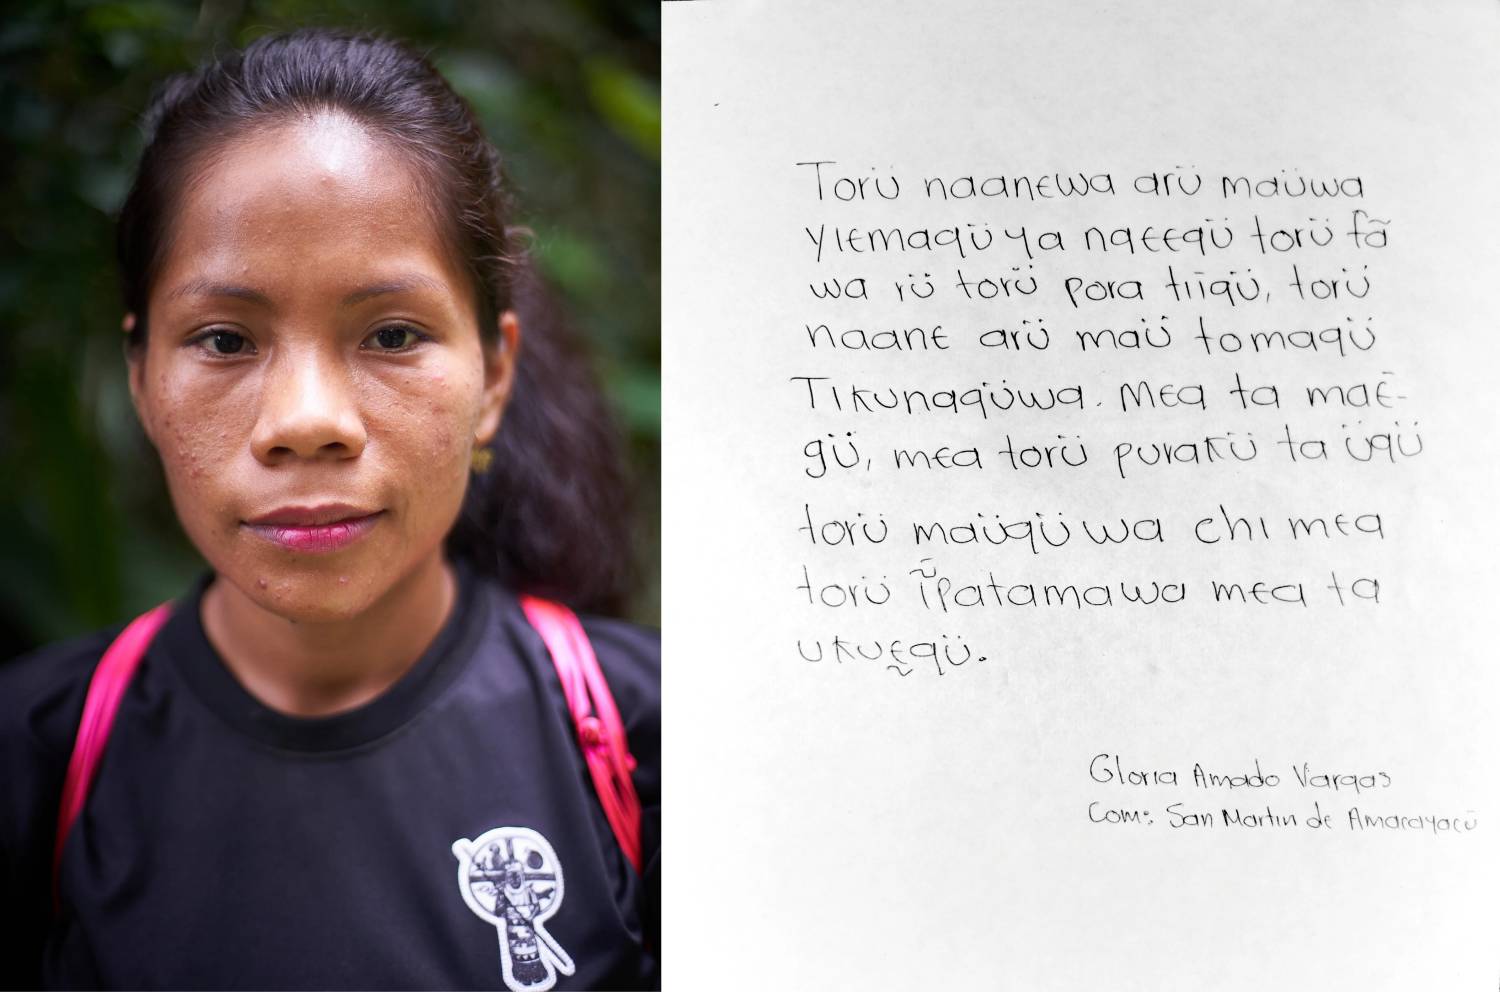 Torü naanewa arü maüwa
yiemagü ya ngeegü torü fã
wa rü torü pora tiigü, torü
naane arü maü tomagü
Tikunagüwa. Mea ta maë-
gü, mea torü purakü ta ügü
torü maügüwa chi mea
torü ĩpatamawa mea ta
ukuḛgü.
Gloria Amado Vargas
Com: San Martin de Amacayacü